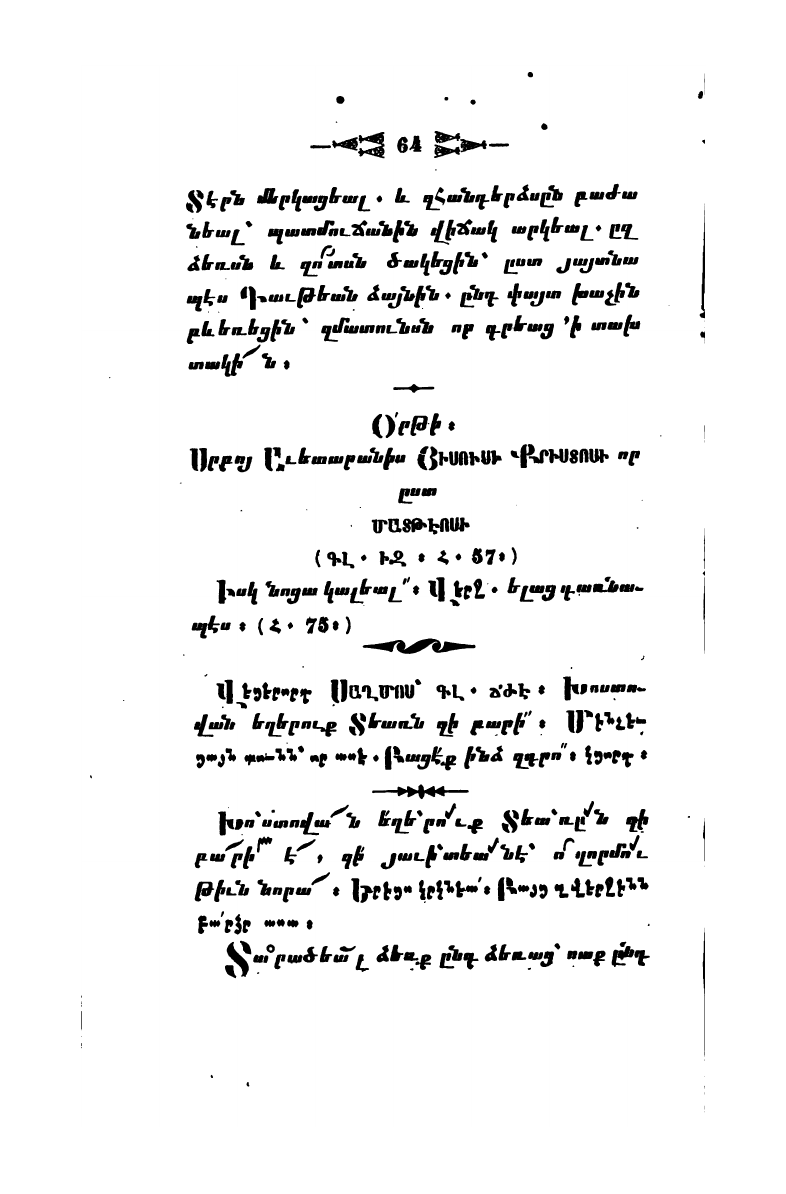 64
Տէրն մերկացեալ . և զՀանդերձսըն բաժա
նեալ՝ պատմուճանին վիճակ արկեալ . ըզ
ձեռսն և զո՜տսն ծակեցին՝ ըստ յայտնա
պէս Դաւթեան ձայնին . ընդ փայտ խաչին
բևեռեցին՝ զմատունսն որ գրեաց ՚ի տախ
տակի՛ն ։
Օ՛րթի ։
Սրբոյ Աւետարանիս ՅԻՍՈՒՍԻ ՔՐԻՍՏՈՍԻ որ
ըստ
ՄԱՏԹԷՈՍԻ
( ԳԼ . ԻԶ ։ Հ . 57։ )
Իսկ նոցա կալեալ՞։ Վերջ . ելաց դառնա-
պէս ։ ( Հ . 75։ )
Վեցերորդ ՍԱՂՄՈՍ՝ ԳԼ . ՃԺԷ ։ Խոստո-
վան եղերուք Տեառն զի բարի՞ ։ Մինչէ-
ցայն տունն՝ որ ասէ . Բացէ՛ք ինձ զդրո՞։ կցորդ ։
Խո՝ստովա՛ն եղե՝րո՛ւք Տեա՝ռը՛ն զի
բա՛րի՞ է՛, զի՛ յաւի՝տեա՛նէ՝ ո՜ղորմո՛ւ
թիւն նորա՛ ։ Երեցս կրկնէա՛։ Բայց զվերջէնն
Տա՞րածեա՜լ ձեռք ընդ ձեռաց՝ ոտք ընդ